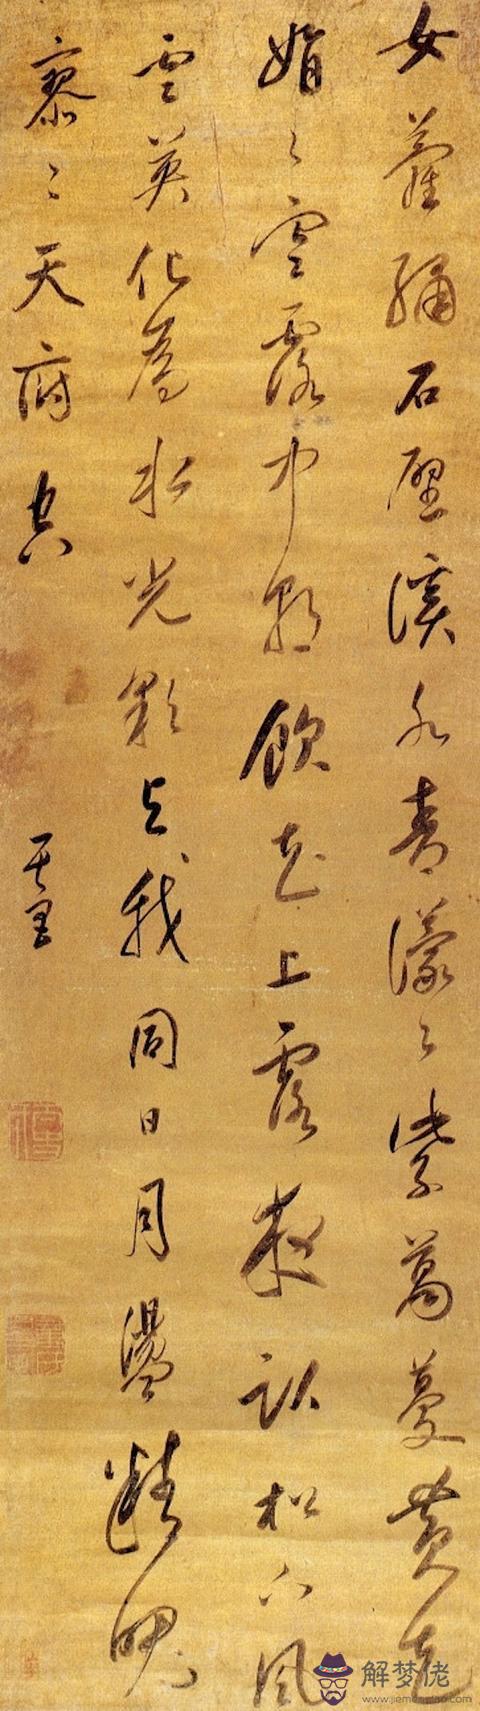 女蘿繡石壁溪水青濛々紫葛蔓黃花
娟々寒露中朝飲花上露夜臥松下風
雲英化為水光彩與我同日月盪精魄
寥々天府空
其昌
解梦佬
www.jiemenglao.com